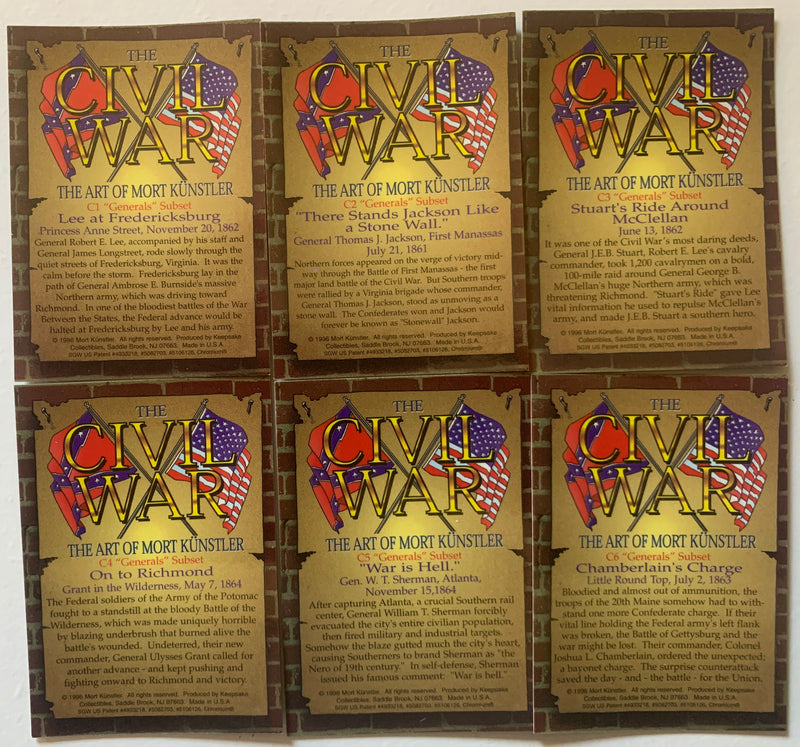 THE
CIVIL
WAR
THE ART OF MORT KÜNSTLER
C1 "Generals" Subset
Lee at Fredericksburg
Princess Anne Street, November 20, 1862
General Robert E. Lee, accompanied by his staff and
General James Longstreet, rode slowly through the
quiet streets of Fredericksburg, Virginia. It was the
calm before the storm. Fredericksburg lay in the
path of General Ambrose E. Burnside's massive
Northern army, which was driving toward
Richmond. In one of the bloodiest battles of the War
Between the States, the Federal advance would be
halted at Fredericksburg by Lee and his army.
© 1996 Mort Künstler. All rights reserved. Produced by Keepsake
Collectibles, Saddle Brook, NJ 07663. Made in U.S.A.
SGW US Patent #4933218, #5082703, #5106126, Chromium®
THE
CIVIL
WAR
THE ART OF MORT KÜNSTLER
C2 "Generals" Subset
"There Stands Jackson Like
a Stone Wall."
General Thomas J. Jackson, First Manassas
July 21, 1861
Northern forces appeared on the verge of victory mid-
way through the Battle of First Manassas - the first
major land battle of the Civil War. But Southern troops
were rallied by a Virginia brigade whose commander,
General Thomas J. Jackson, stood as unmoving as a
stone wall. The Confederates won and Jackson would
forever be known as "Stonewall" Jackson.
© 1996 Mort Künstler. All rights reserved. Produced by Keepsake
Collectibles, Saddle Brook, NJ 07663. Made in U.S.A.
SGW US Patent #4933218, #5082703, #5106126, Chromium®
THE
CIVIL
WAR
THE ART OF MORT KÜNSTLER
C3 "Generals" Subset
Stuart's Ride Around
McClellan
June 13, 1862
It was one of the Civil War's most daring deeds,
General J.E.B. Stuart, Robert E. Lee's cavalry
commander, took 1,200 cavalrymen on a bold,
100-mile raid around General George B.
McClellan's huge Northern army, which was
threatening Richmond. "Stuart's Ride" gave Lee
vital information he used to repulse McClellan's
army, and made J.E.B. Stuart a southern hero.
© 1996 Mort Künstler. All rights reserved. Produced by Keepsake
Collectibles, Saddle Brook, NJ 07663. Made in U.S.A.
SGW US Patent #4933218, #5082703, #5106126, Chromium®
THE
CIVIL
WAR
THE ART OF MORT KÜNSTLER
C4 "Generals" Subset
On to Richmond
Grant in the Wilderness, May 7, 1864
The Federal soldiers of the Army of the Potomac
fought to a standstill at the bloody Battle of the
Wilderness, which was made uniquely horrible
by blazing underbrush that burned alive the
battle's wounded. Undeterred, their new
commander, General Ulysses Grant called for
another advance - and kept pushing and
fighting onward to Richmond and victory.
© 1996 Mort Künstler. All rights reserved. Produced by Keepsake
Collectibles, Saddle Brook, NJ 07663. Made in U.S.A.
SGW US Patent #4933218, #5082703, #5106126, Chromium®
THE
CIVIL
WAR
THE ART OF MORT KÜNSTLER
C5 "Generals" Subset
"War is Hell."
Gen. W. T. Sherman, Atlanta,
November 15,1864
After capturing Atlanta, a crucial Southern rail
center, General William T. Sherman forcibly
evacuated the city's entire civilian population,
then fired military and industrial targets.
Somehow the blaze gutted much the city's heart,
causing Southerners to brand Sherman as "the
Nero of 19th century." In self-defense, Sherman
issued his famous comment: "War is hell."
© 1996 Mort Künstler. All rights reserved. Produced by Keepsake
Collectibles, Saddle Brook, NJ 07663. Made in U.S.A.
SGW US Patent #4933218, #5082703, #5106126, Chromium®
THE
CIVIL
WAR
THE ART OF MORT KÜNSTLER
C6 "Generals" Subset
Chamberlain's Charge
Little Round Top, July 2, 1863
Bloodied and almost out of ammunition, the
troops of the 20th Maine somehow had to with-
stand one more Confederate charge. If their
vital line holding the Federal army's left flank
was broken, the Battle of Gettysburg and the
war might be lost. Their commander, Colonel
Joshua L. Chamberlain, ordered the unexpected;
a bayonet charge. The surprise counterattack
saved the day - and - the battle - for the Union.
© 1996 Mort Künstler. All rights reserved. Produced by Keepsake
Collectibles, Saddle Brook, NJ 07663. Made in U.S.A.
SGW US Patent #4933218, #5082703, #5106126, Chromium®